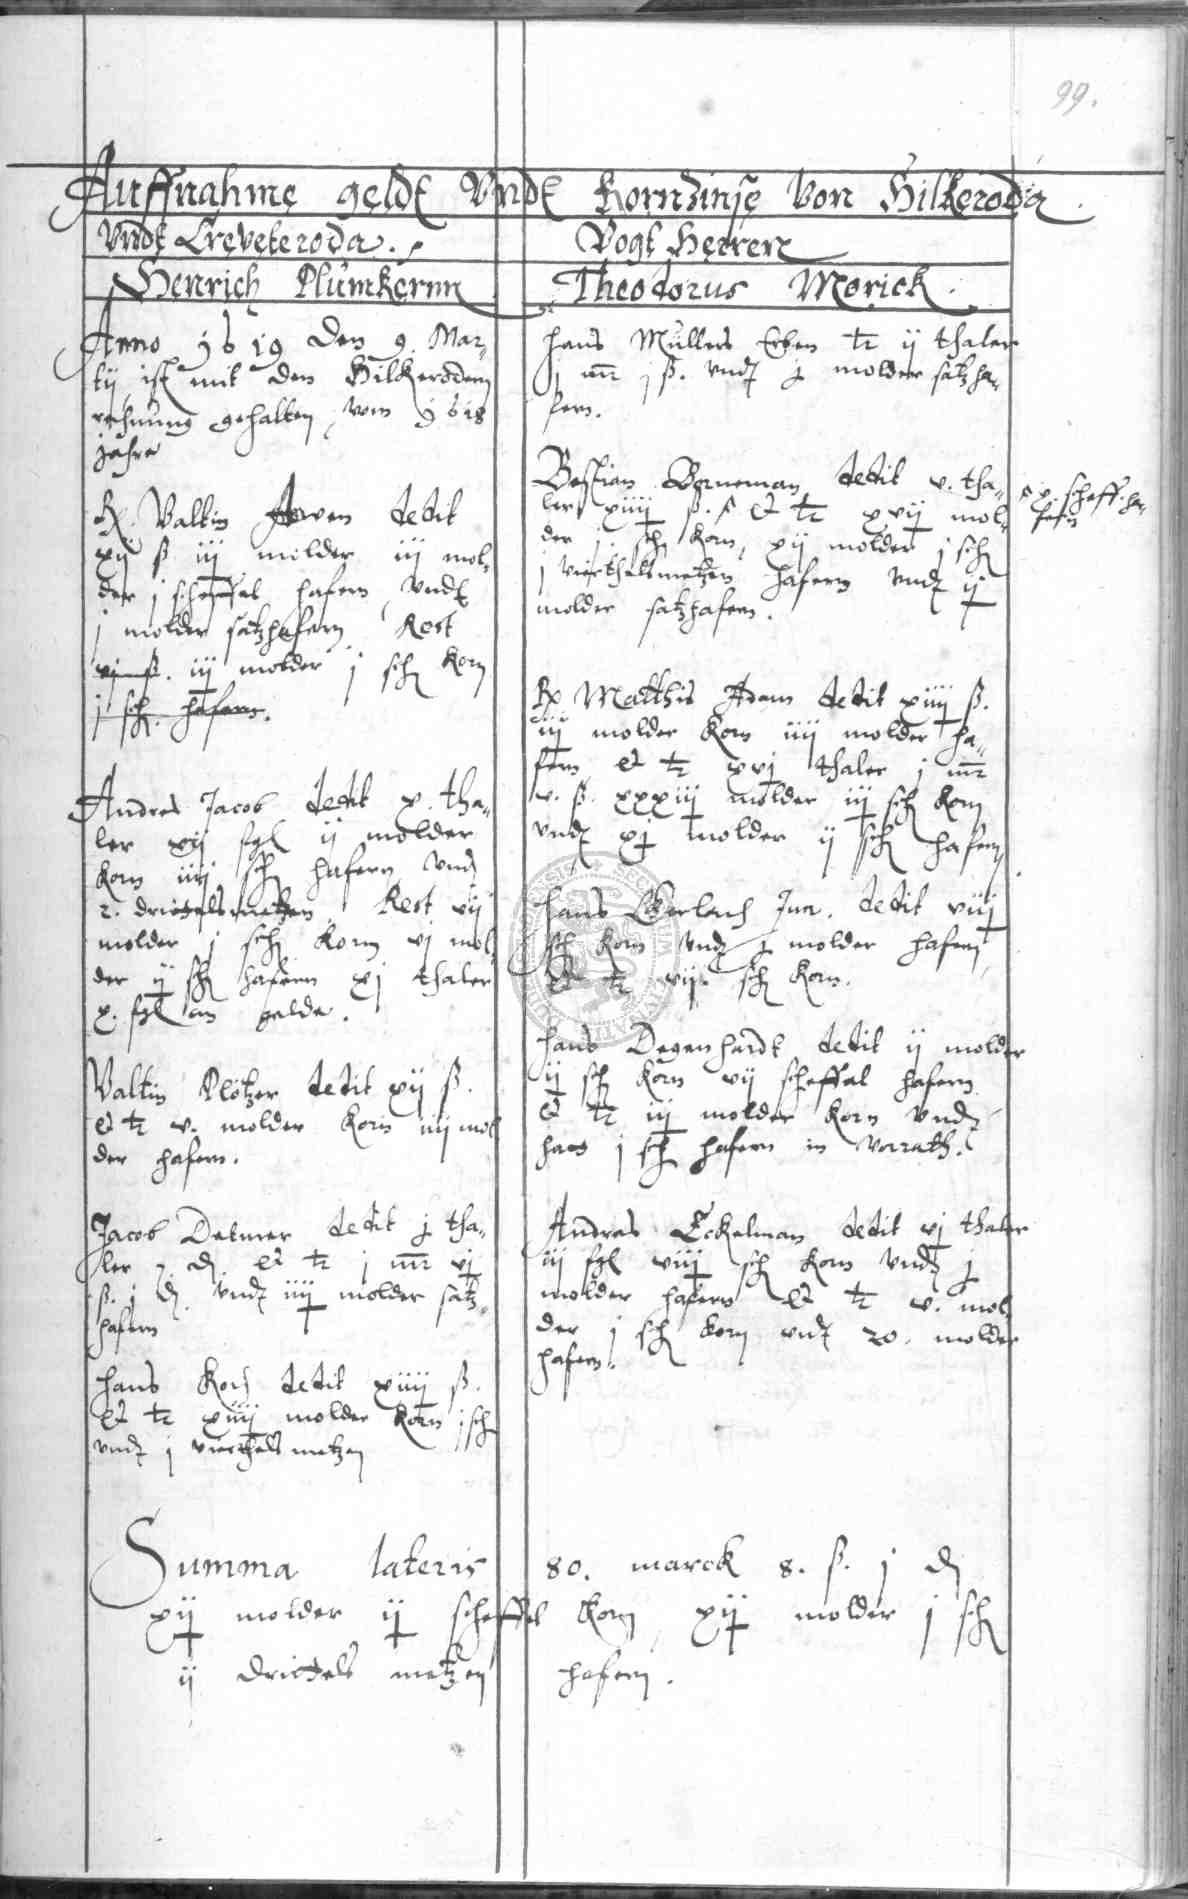 99.
Auffnahme geldt Vndt Kornzinse Von Hilkeroda
Vndt Creveteroda.
Vogt Herren
Henrich Plümkernn
Theodorus Morick
Anno 1619 den 9. Mar-
tij ist mit den Hilkerodern
rechnung gehalten vom 1618
Jahre
Rp. Valtin Arven dedit
xij ß iij molder iij mol-
der j scheffel hafern Vndt
j molder satzhafern Rest
vj ß. iij molder j sch Korn
j sch. hafern.
Andres Jacob dedit x. tha-
ler xij sgl ij molder
Korn iiij sch hafern Vnd
2. drittelsmetzen. Rest vij
molder j sch Korn vj mol-
der ij sch hafern xj thaler
x. sgl an gelde.
Valtin Plötzer dedit xij ß.
et tr v. molder Korn iiij mol
der hafern.
Jacob Detmer dedit j tha-
ler 7 d. et tr j mr vj
ß. j d. Vndt iiij molder satz-
hafern
Hans Koch dedit xiiij ß.
et tr xiiij molder Korn j sch
vndt j viertels metzen
Hans Müllers Erben tr ij thaler
j mr j ß. Vndt j molder satzha-
fern.
Bestian Borneman dedit v. tha-
ler xiiij ß. et tr xvij mol-
der j sch Korn, xij molder j sch
j viertelsmetzen hafern Vndt ij
molder satzhafern.
x. scheff. ha-
fern
Rp Matthis Adam dedit xiiij ß.
iij molder Korn iiij molder ha-
fern et tr xvj thaler j mr
v. ß. xxxiij molder iij sch Korn
Vndt xj molder ij sch hafern
Hans Gerlach Jun. dedit viij
sch Korn Vndt j molder hafern
et tr vij. sch Korn.
Hans Degenhardt dedit ij molder
ij sch Korn vij scheffel hafern
et tr iij molder Korn Vndt
hatt j sch hafern in Vorrath.
Andreas Eckelman dedit vj thaler
iij sgl viij sch Korn Vndt j
molder hafern et tr v. mol-
der j sch Korn vndt 20. molder
hafern.
Summa lateris 80. marck 8. ß. j d
xij molder ij scheffel Korn, xij molder j sch
ij drittels metzen hafern.